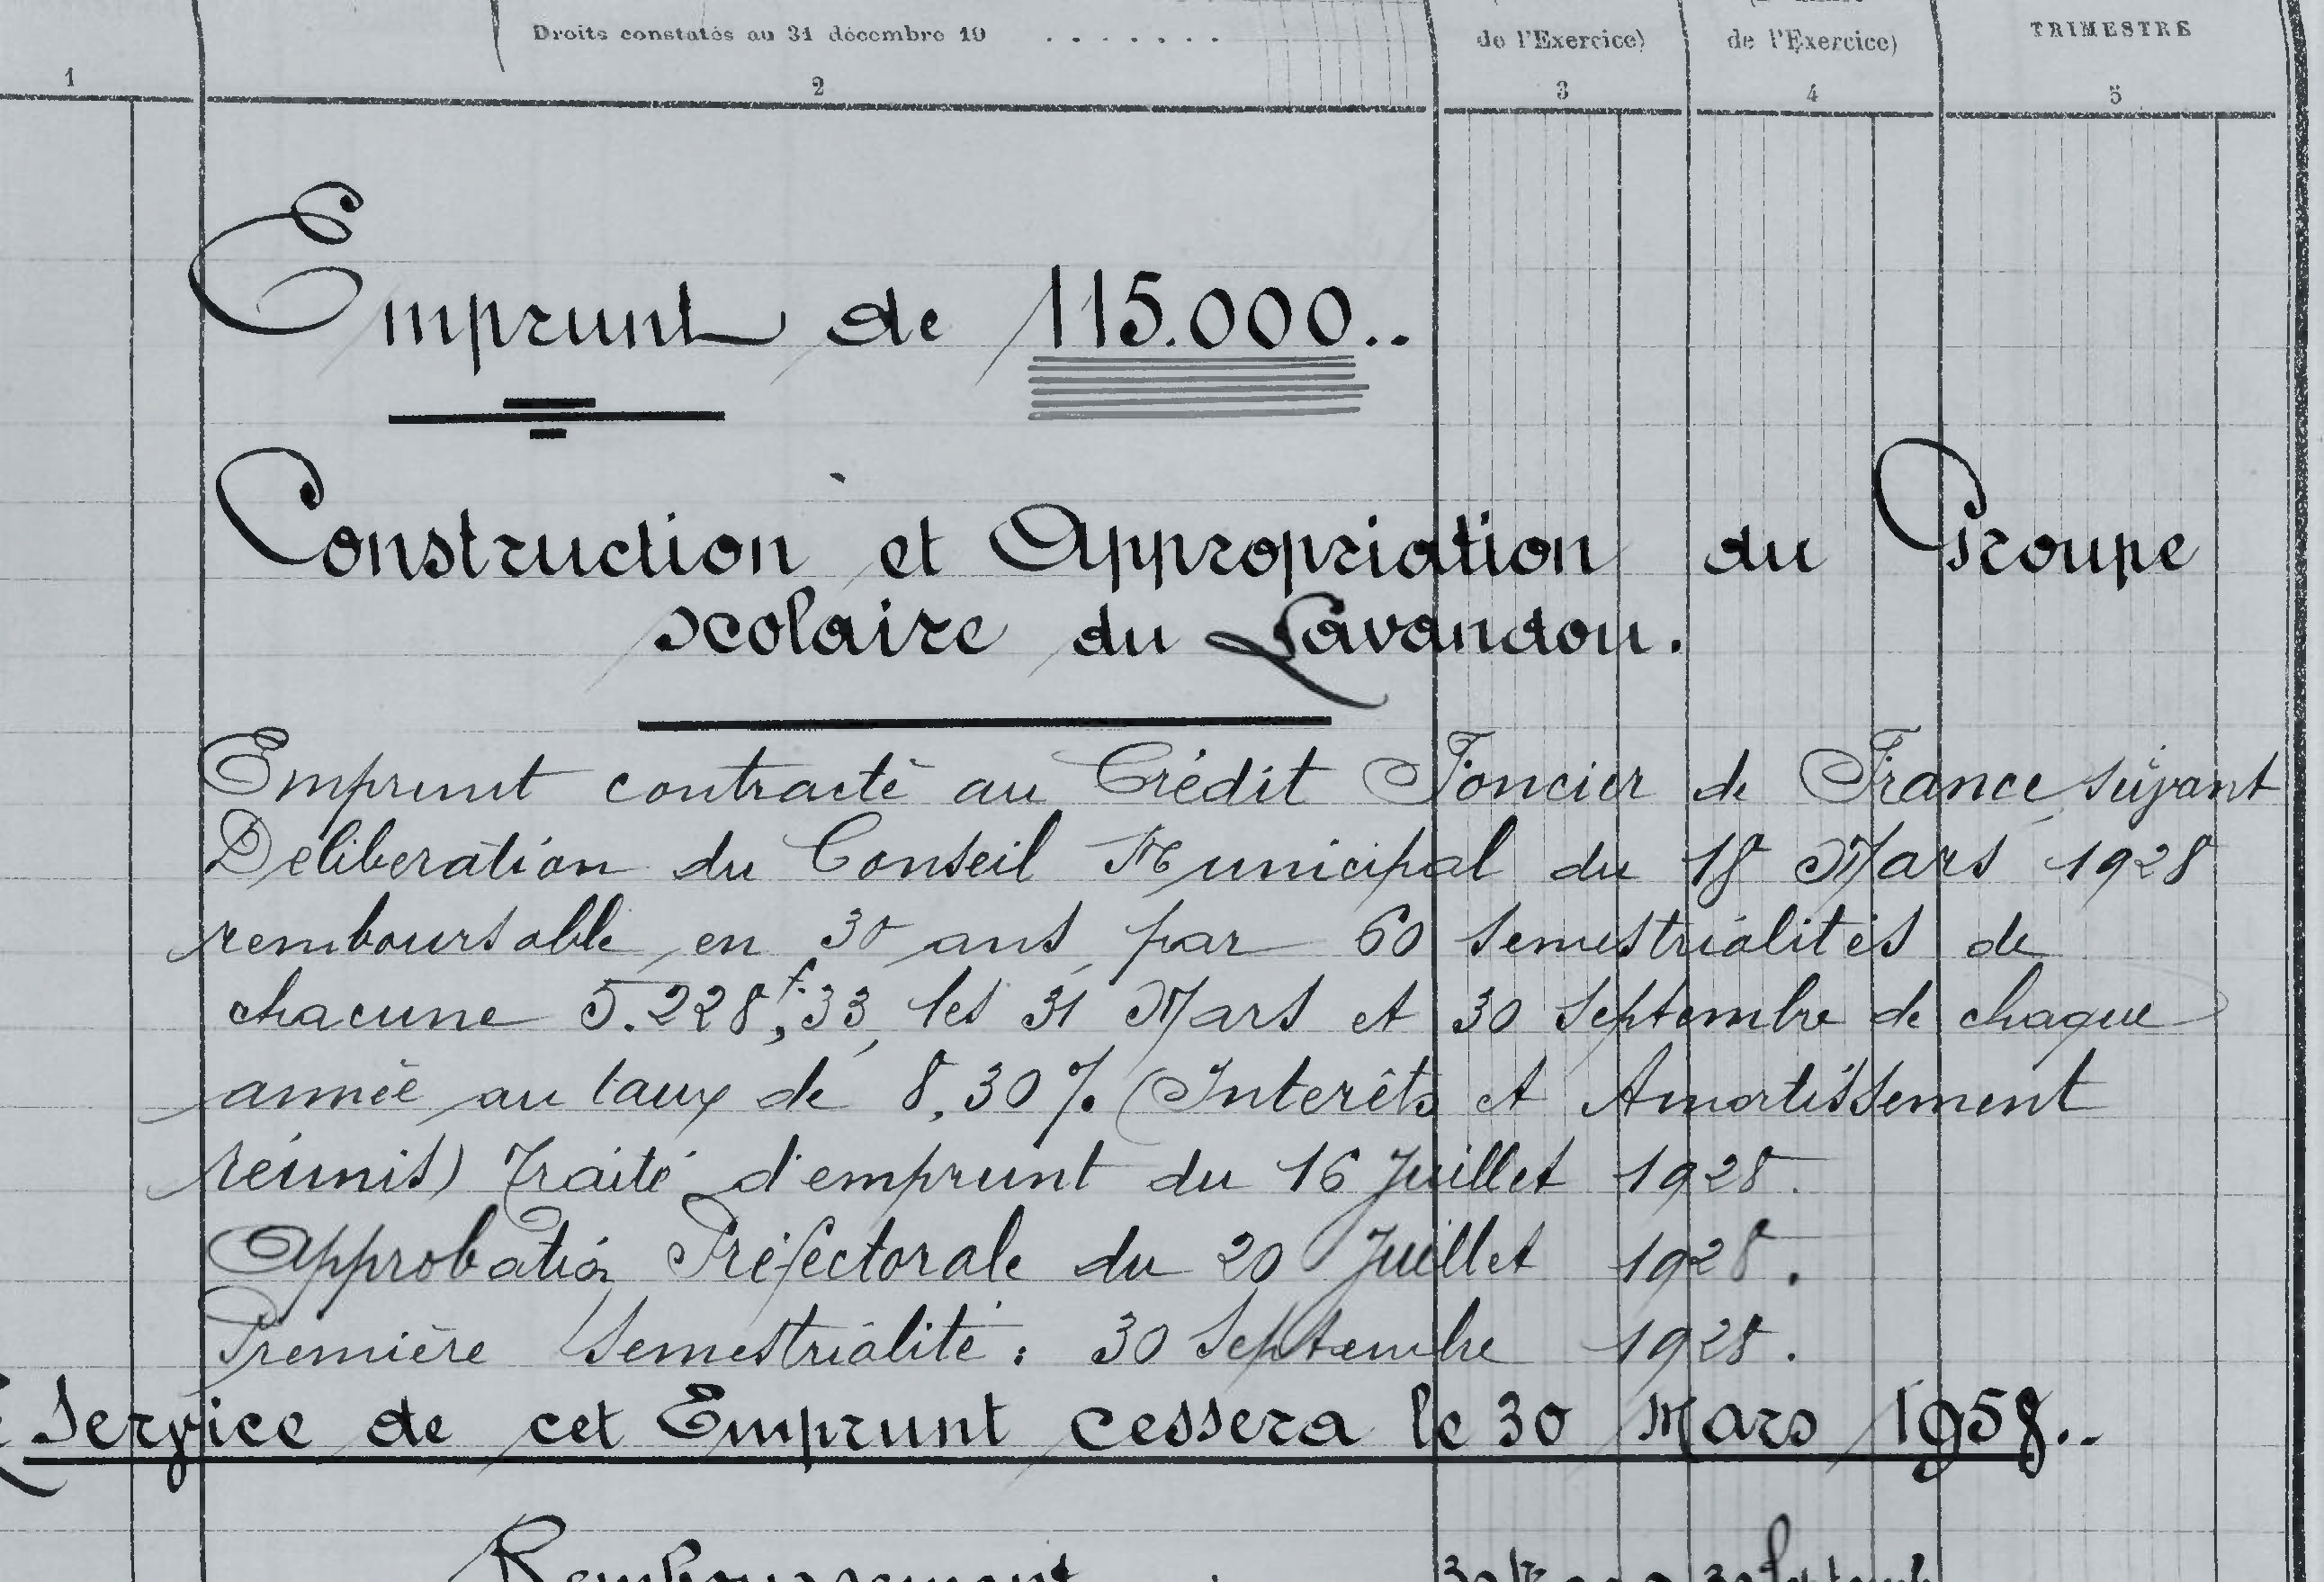 Droits constatés au 31 décembre 19 . . . . . . .
de l'Exercice)
de l'Exercice)
TRIMESTRE
1
2
3
4
5
Emprunt de 115.000..
Construction et Appropriation du Groupe
scolaire du Lavandou.
Emprunt contracté au Crédit Foncier de France suivant
Déliberation du Conseil Municipal du 18 Mars 1928
remboursable en 30 ans par 60 semestrialités de
chacune 5.228f,33, les 31 Mars et 30 Septembre de chaque
année au taux de 8,30% (Interêts et Amortissement
réunis) Traité d'emprunt du 16 Juillet 1928.
Approbation Préfectorale du 20 Juillet 1928.
Première Semestrialité : 30 Septembre 1928.
Service de cet Emprunt cessera le 30 Mars 1958..
Remboursement